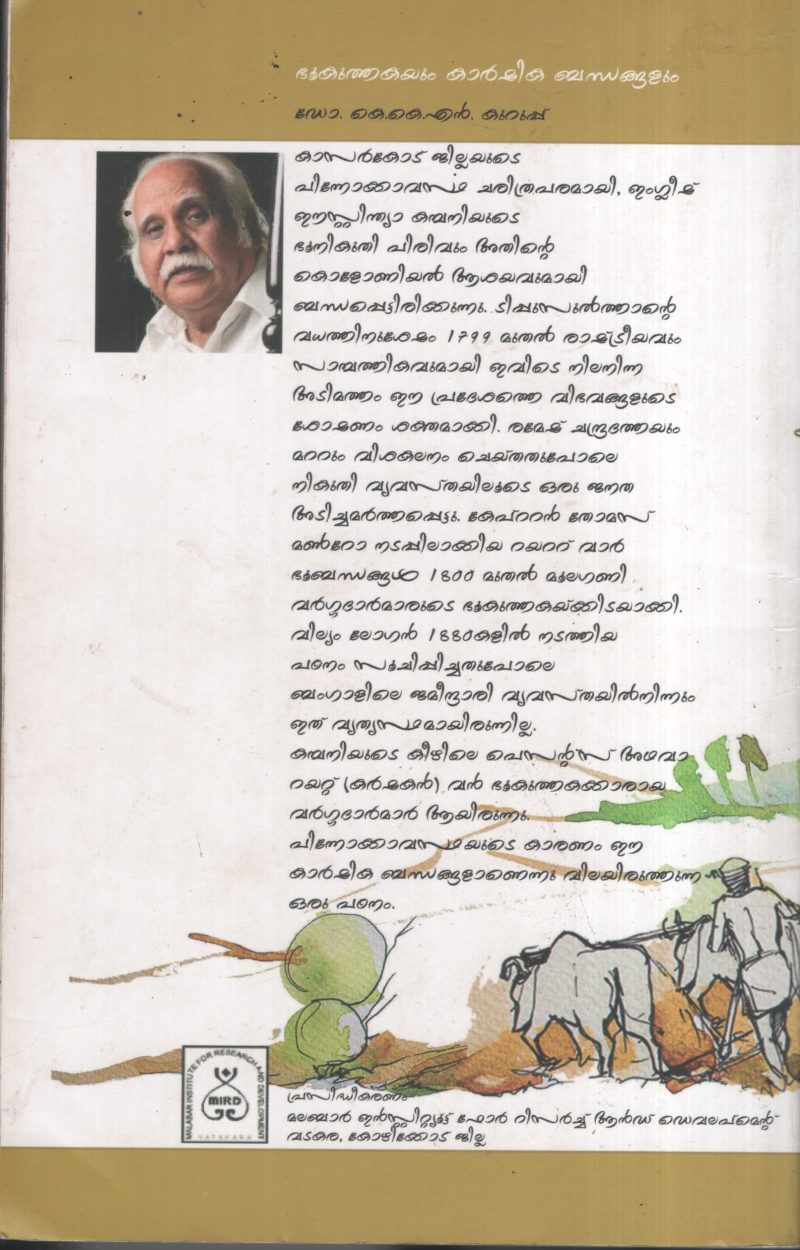 ഭൂകുത്തകയും കാർഷിക ബന്ധങ്ങളും
ഡോ. കെ.കെ.എൻ. കുറുപ്പ്
കാസർകോട് ജില്ലയുടെ
പിന്നോക്കാവസ്ഥ ചരിത്രപരമായി, ഇംഗ്ലീഷ്
ഈസ്റ്റിന്ത്യാ കമ്പനിയുടെ
ഭൂനികുതി പിരിവും അതിന്റെ
കൊളോണിയൽ ആശയവുമായി
ബന്ധപ്പെട്ടിരിക്കുന്നു. ടിപ്പുസുൽത്താന്റെ
വധത്തിനുശേഷം 1799 മുതൽ രാഷ്ട്രീയവും
സാമ്പത്തികവുമായി ഇവിടെ നിലനിന്ന
അടിമത്തം ഈ പ്രദേശത്തെ വിഭവങ്ങളുടെ
ശോഷണം ശക്തമാക്കി. രമേഷ് ചന്ദ്രദത്തയും
മററും വിശകലനം ചെയ്തതുപോലെ
നികുതി വ്യവസ്തയിലൂടെ ഒരു ജനത
അടിച്ചമർത്തപ്പെട്ടു. കേപ്ററൻ തോമസ്
മൺറോ നടപ്പിലാക്കിയ റയററ് വാർ
ഭൂബന്ധങ്ങൾ 1800 മുതൽ മൂലഗണി
വർഗ്ഗദാർമാരുടെ ഭൂകുത്തകയ്ക്കിടയാക്കി.
വില്യം ലോഗൻ 1880കളിൽ നടത്തിയ
പഠനം സൂചിപ്പിച്ചതുപോലെ
ബംഗാളിലെ ജമീന്ദാരി വ്യവസ്തയിൽനിന്നും
ഇത് വ്യത്യസ്ഥമായിരുന്നില്ല.
കമ്പനിയുടെ കീഴിലെ പെസന്റ്സ് അഥവാ
റയറ്റ് (കർഷകൻ) വൻ ഭൂകുത്തകക്കാരായ
വർഗ്ഗദാർമാർ ആയിരുന്നു.
പിന്നോക്കാവസ്ഥയുടെ കാരണം ഈ
കാർഷിക ബന്ധങ്ങളാണെന്നു വിലയിരുത്തുന്ന
ഒരു പഠനം.
MALABAR INSTITUTE FOR RESEARCH AND DEVELOPMENT
MIRD
VATAKARA
പ്രസിദ്ധീകരണം
മലബാർ ഇൻസ്റ്റിറ്റ്യൂട്ട് ഫോർ റിസർച്ച് ആൻഡ് ഡെവലപ്മെന്റ്
വടകര, കോഴിക്കോട് ജില്ല